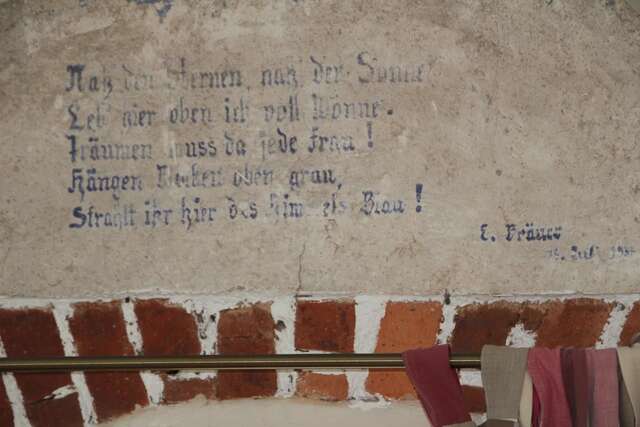 Nah den Sternen, nah der Sonne
Leb hier oben ich voll Wonne.
Träumen muss da jede Frau!
Hängen Wolken oben grau,
Strahlt ihr hier des Himmels Blau!
E. Bräuer
Juli